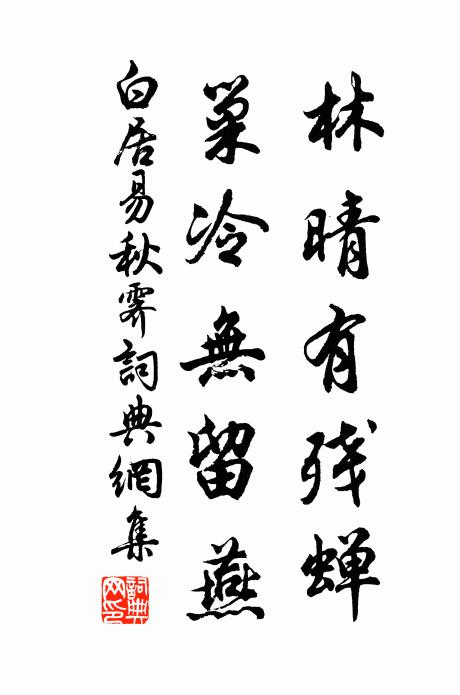 林晴有残蝉
巢冷無留燕
白居易秋霽詞典網集
詞典網印